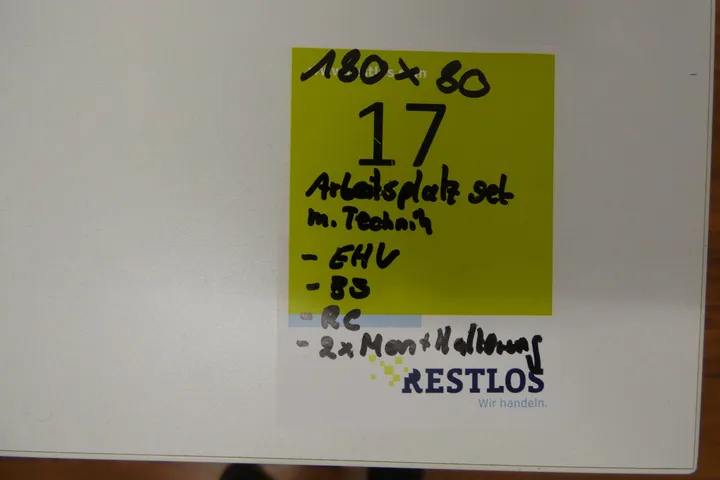 180 x 80
17
Arbeitsplatz set
m. Technik
- EHV
- BS
- RC
- 2x Mon + Halterung
RESTLOS
Wir handeln.